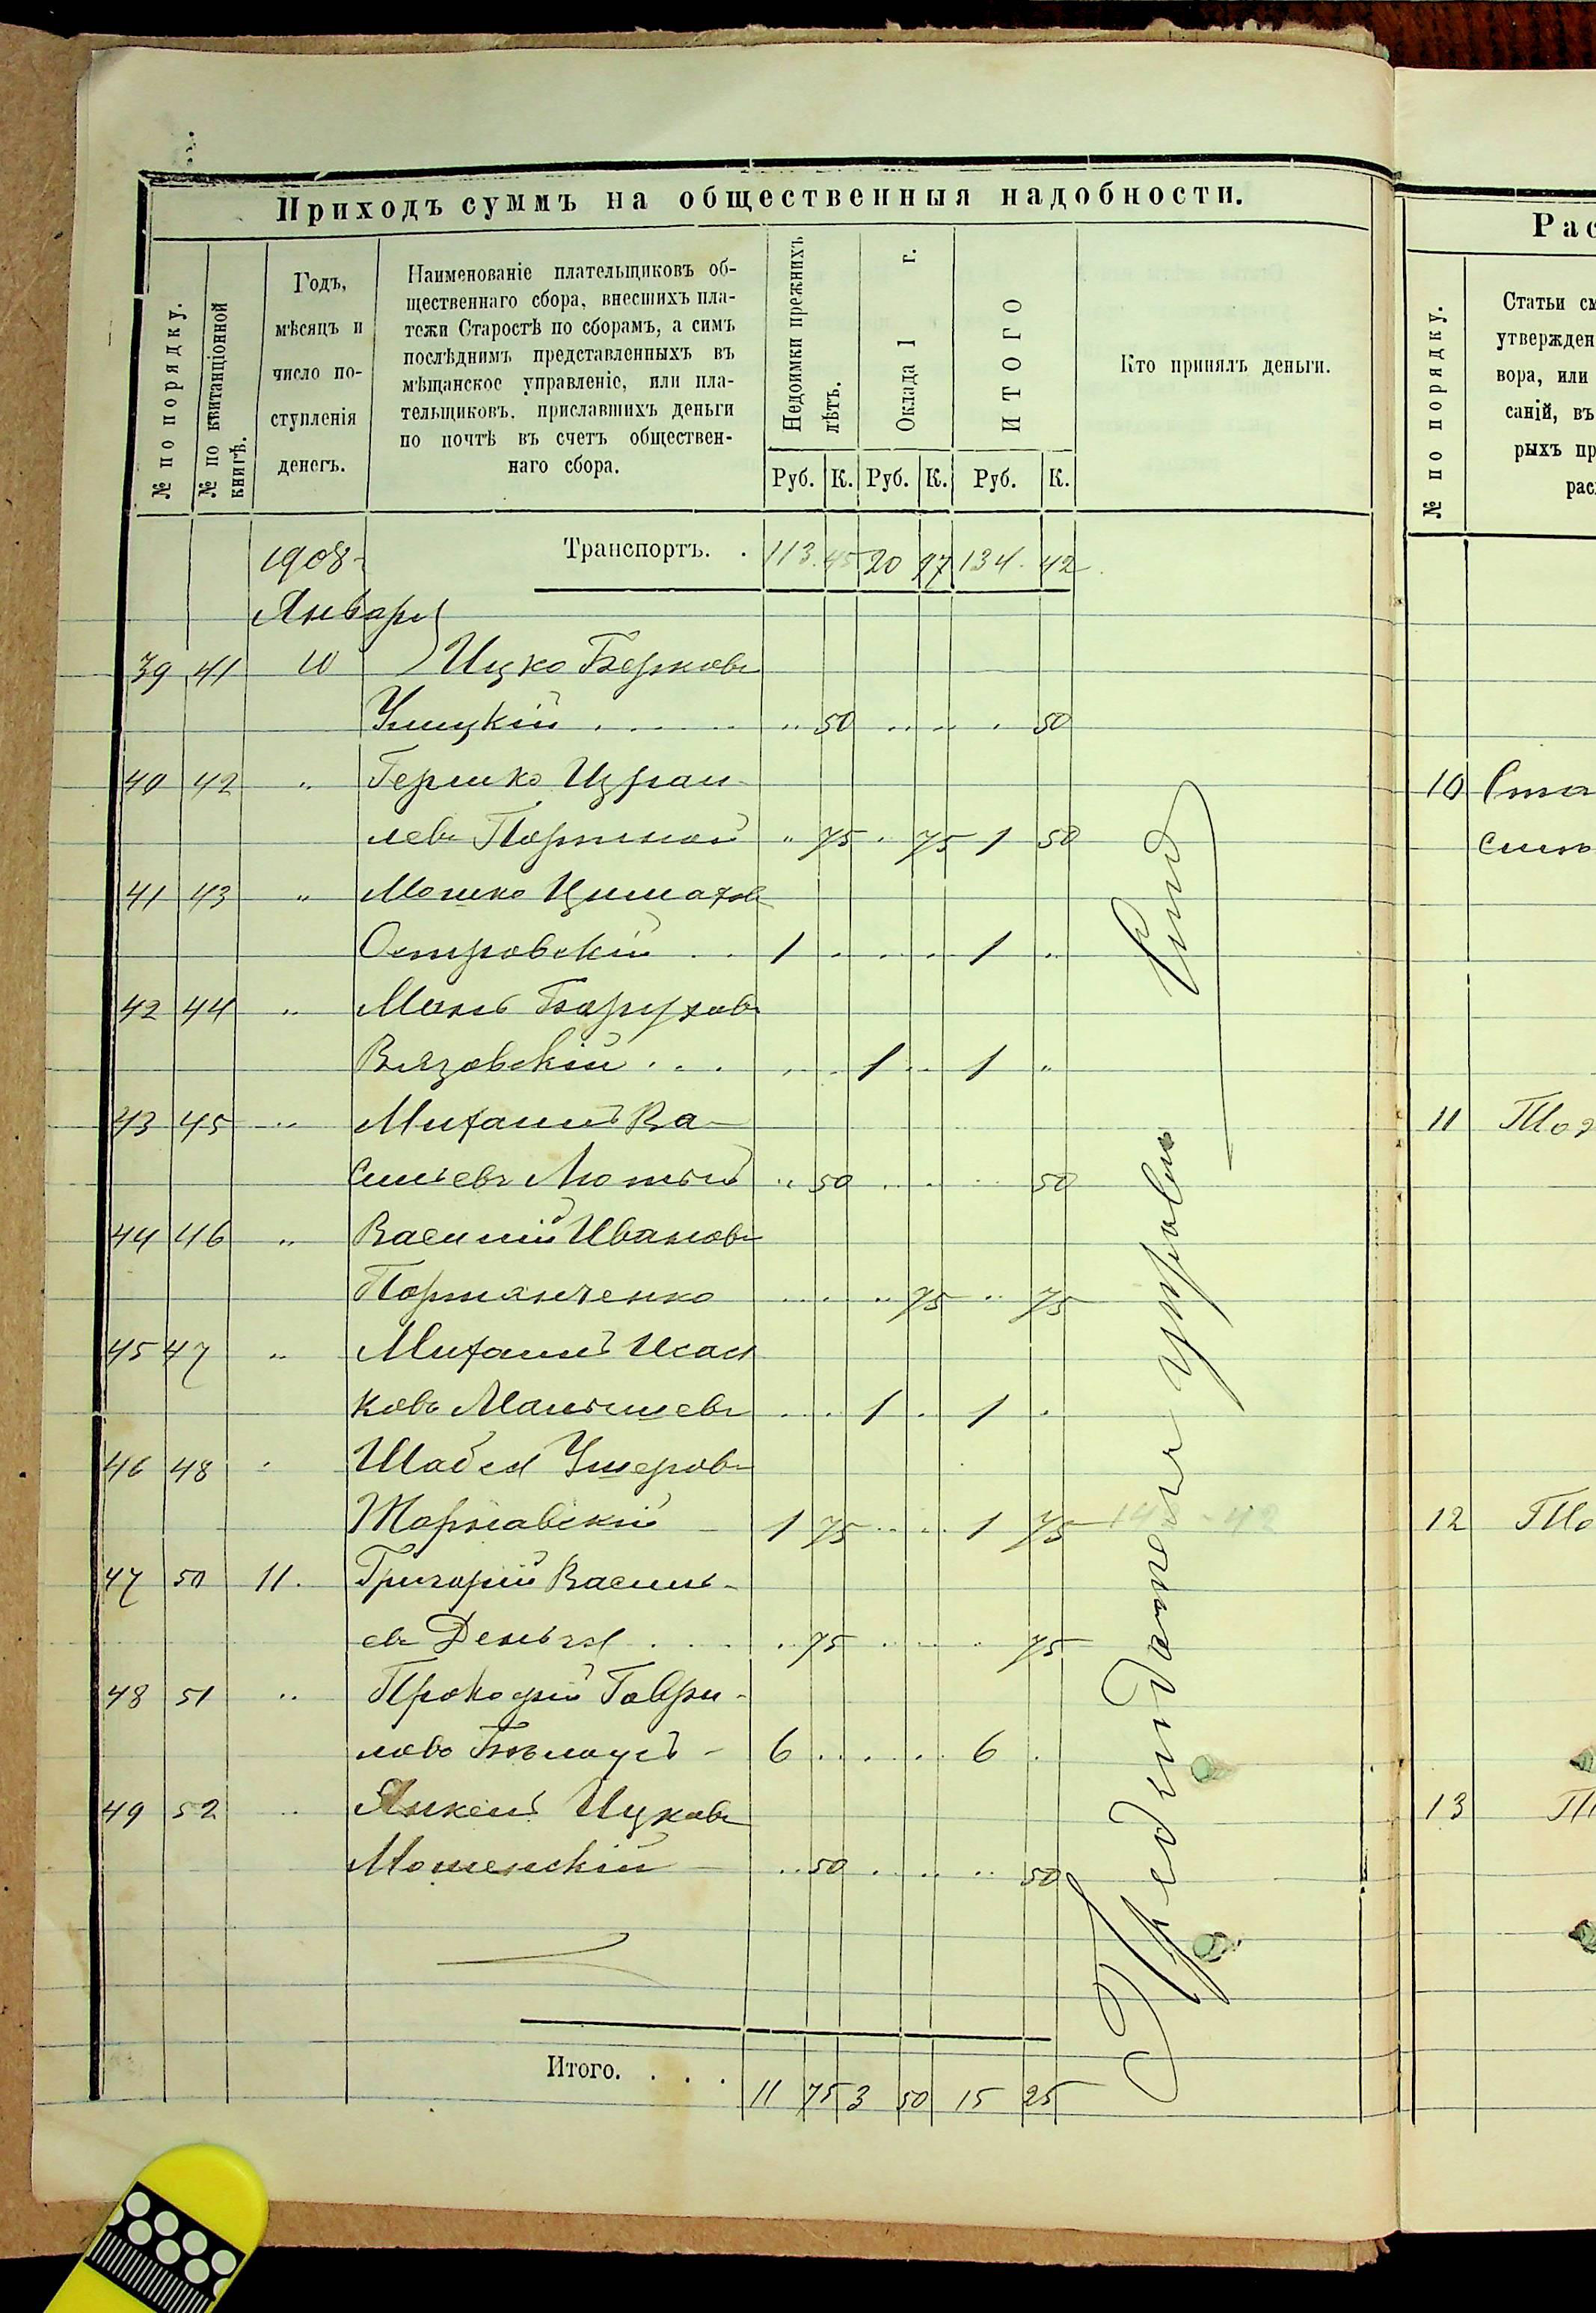 Приходъ суммъ на общественныя надобности.
№ по порядку.
№ по квитанціонной книгѣ.
Годъ,
мѣсяцъ и
число по-
ступленія
денегъ.
Наименованіе плательщиковъ об-
щественнаго сбора, внесшихъ пла-
тежи Старостѣ по сборамъ, а симъ
послѣднимъ представленныхъ въ
мѣщанское управленіе, или пла-
тельщиковъ, приславшихъ деньги
по почтѣ въ счетъ обществен-
наго сбора.
Недоимки прежнихъ лѣтъ.
Оклада 1 г.
ИТОГО
Кто принялъ деньги.
Руб. К. Руб. К. Руб. К.
1908 Транспортъ. . 113 45 20 97 134 42
Января
39 41 10 Ицко Берковъ
50 50
40 42 " Гершко Израи-
левъ Портной " 75 " 75 1 50
41 43 " Мошко
Островскій . . 1 . . . . 1 ..
42 44 " Боруховъ
Вязовскій . . . 1 .. 1 "
43 45 " Михаилъ Ва-
сильевъ Лютый " 50 . . . . 50
44 46 " Василій Ивановъ
Портянченко 75 " 75
45 47 " Михаилъ Исаа
ковъ 1 . 1 .
46 48 " Умеровъ
1 75 1 75
47 50 11. Григорій Василь-
евъ Деньга . . . . 75 75
48 51 " Прокофій Гаври-
ловъ 6 . . . . 6 .
49 52 " Янкель Ицковъ
Мошенскій " 50 50
Итого. . . . 11 75 3 50 15 25
Рас
№ по порядку.
Статьи см
утвержден
вора, или
саній, въ
рыхъ пр
рас
10
11
12
13